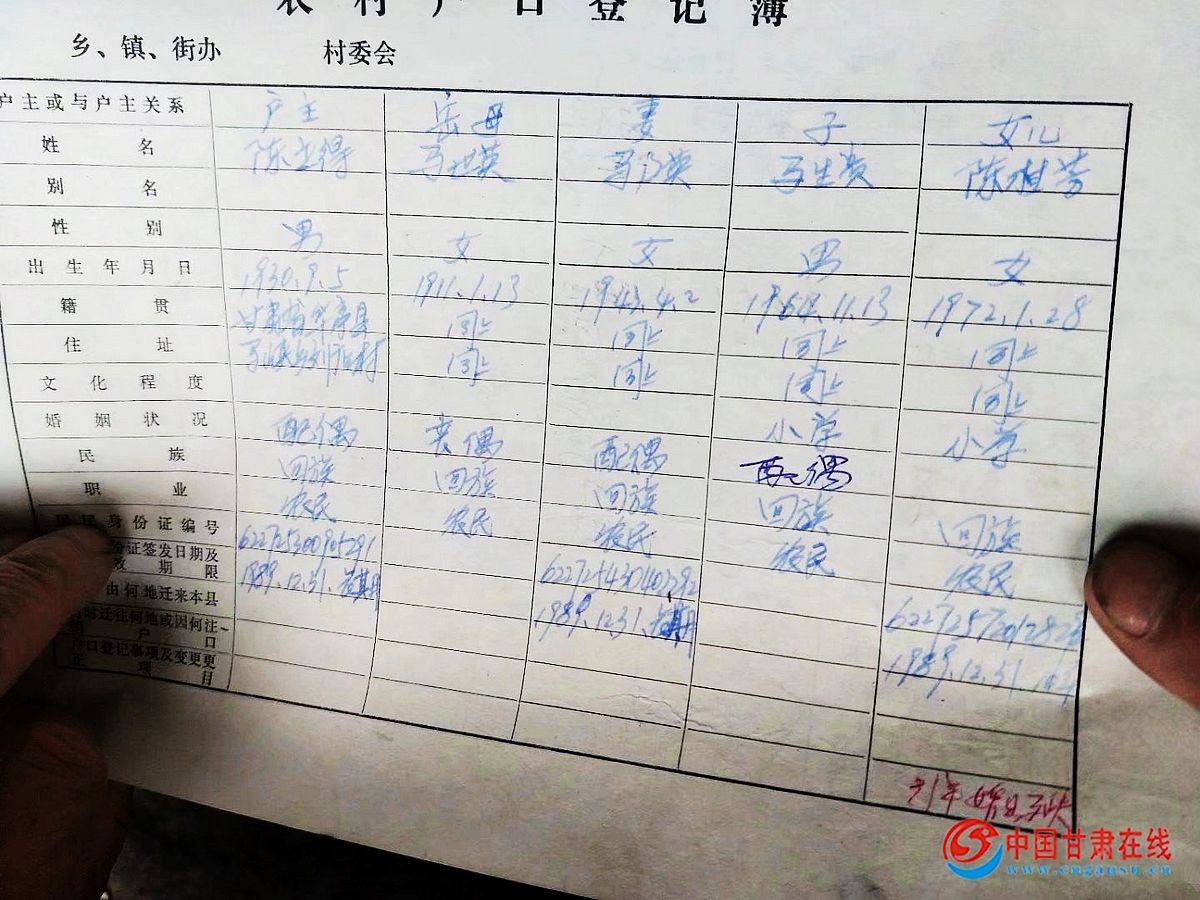 农村户口登记簿
乡、镇、街办 村委会
户主或与户主关系 户主 岳母 妻 子 女儿
姓名 陈立得 马世英 马 英 马生贵 陈桂芳
别名
性别 男 女 女 男 女
出生年月日 1930.9.5 1911.1.13 1943.4.2 1964.11.13 1972.1.28
籍贯 甘肃省华亭县 同上 同上 同上 同上
住址 同上 同上 同上 同上
文化程度 小学 小学
婚姻状况 配偶 丧偶 配偶 配偶
民族 回族 回族 回族 回族 回族
职业 农民 农民 农民 农民 农民
居民身份证编号
份证签发日期及 1989.12.31. 1989.12.31. 1989.12.31.
效期限
由何地迁来本县
时迁往何地或因何注
户口
户口登记事项及变更更
正项目
中国甘肃在线
www.cngansu.cn